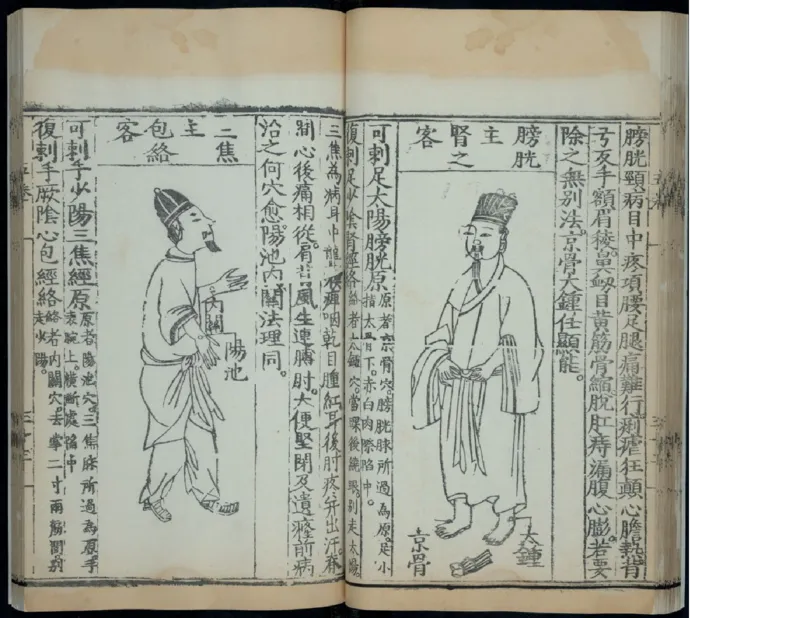 膀胱頸病目中疼項腰足腿痛難行痢瘧狂顛心膽熱背
弓反手額眉稜鼻衄目黃筋骨縮脫肛痔漏腹心膨若要
除之無別法京骨大鍾任顯能。
膀胱主腎之客
大鍾
京骨
可刺足太陽膀胱原
原者京骨穴。膀胱脉所過為原。足小
指大骨下。赤白肉際陷中。
復刺足少陰腎經絡
絡者大鍾穴。當踝後繞跟。別走太陽。
三焦為病耳中聾喉痺咽乾目腫紅耳後肘疼并出汗脊
間心後痛相從。肩背風生連膊肘。大便堅閉及遺癃前病
治之何穴愈。陽池內關法理同。
三焦主包絡客
陽池
內關
可刺手少陽三焦經原
原者陽池穴。三焦脉所過為原。手
表腕上。橫斷處陷中
復刺手厥陰心包經絡
絡者內關穴。去掌二寸兩筋間別
走少陽。